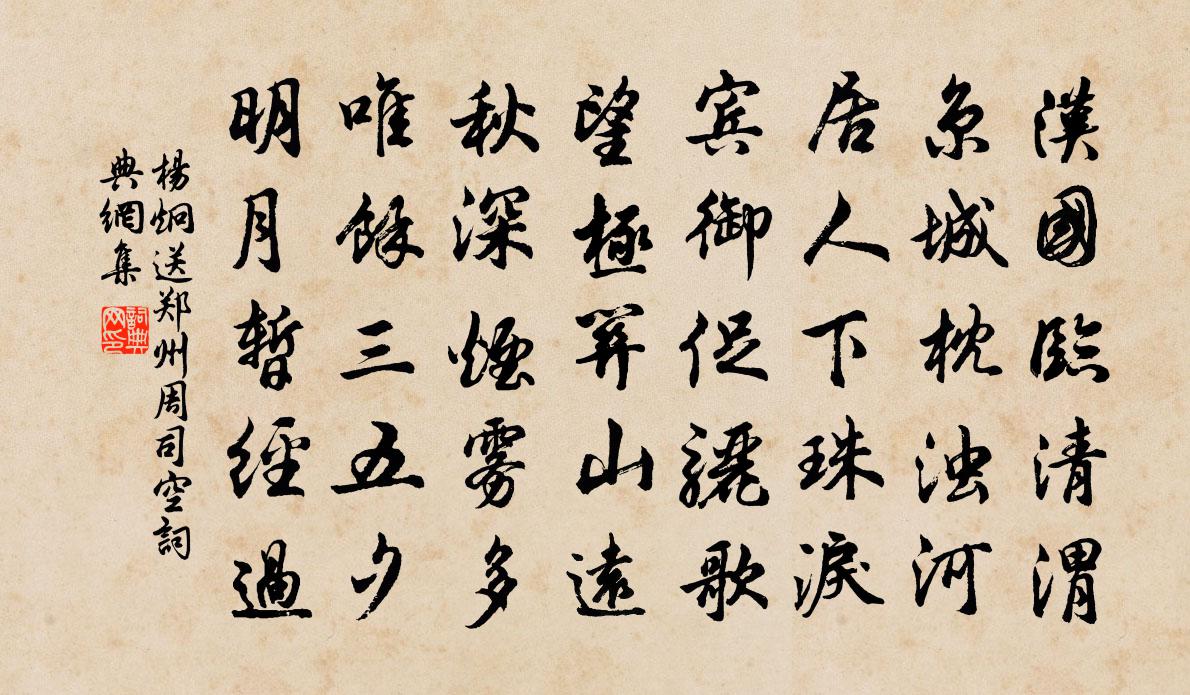 漢國臨清渭
京城枕浊河
居人下珠淚
宾御促驪歌
望極關山遠
秋深煙雾多
唯餘三五夕
明月暫經過
楊炯送郑州周司空詞
典網集
詞典
网印